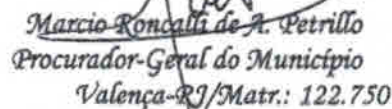 Marcio Roncalli de A. Petrillo
Procurador-Geral do Município
Valença-RJ/Matr.: 122.750